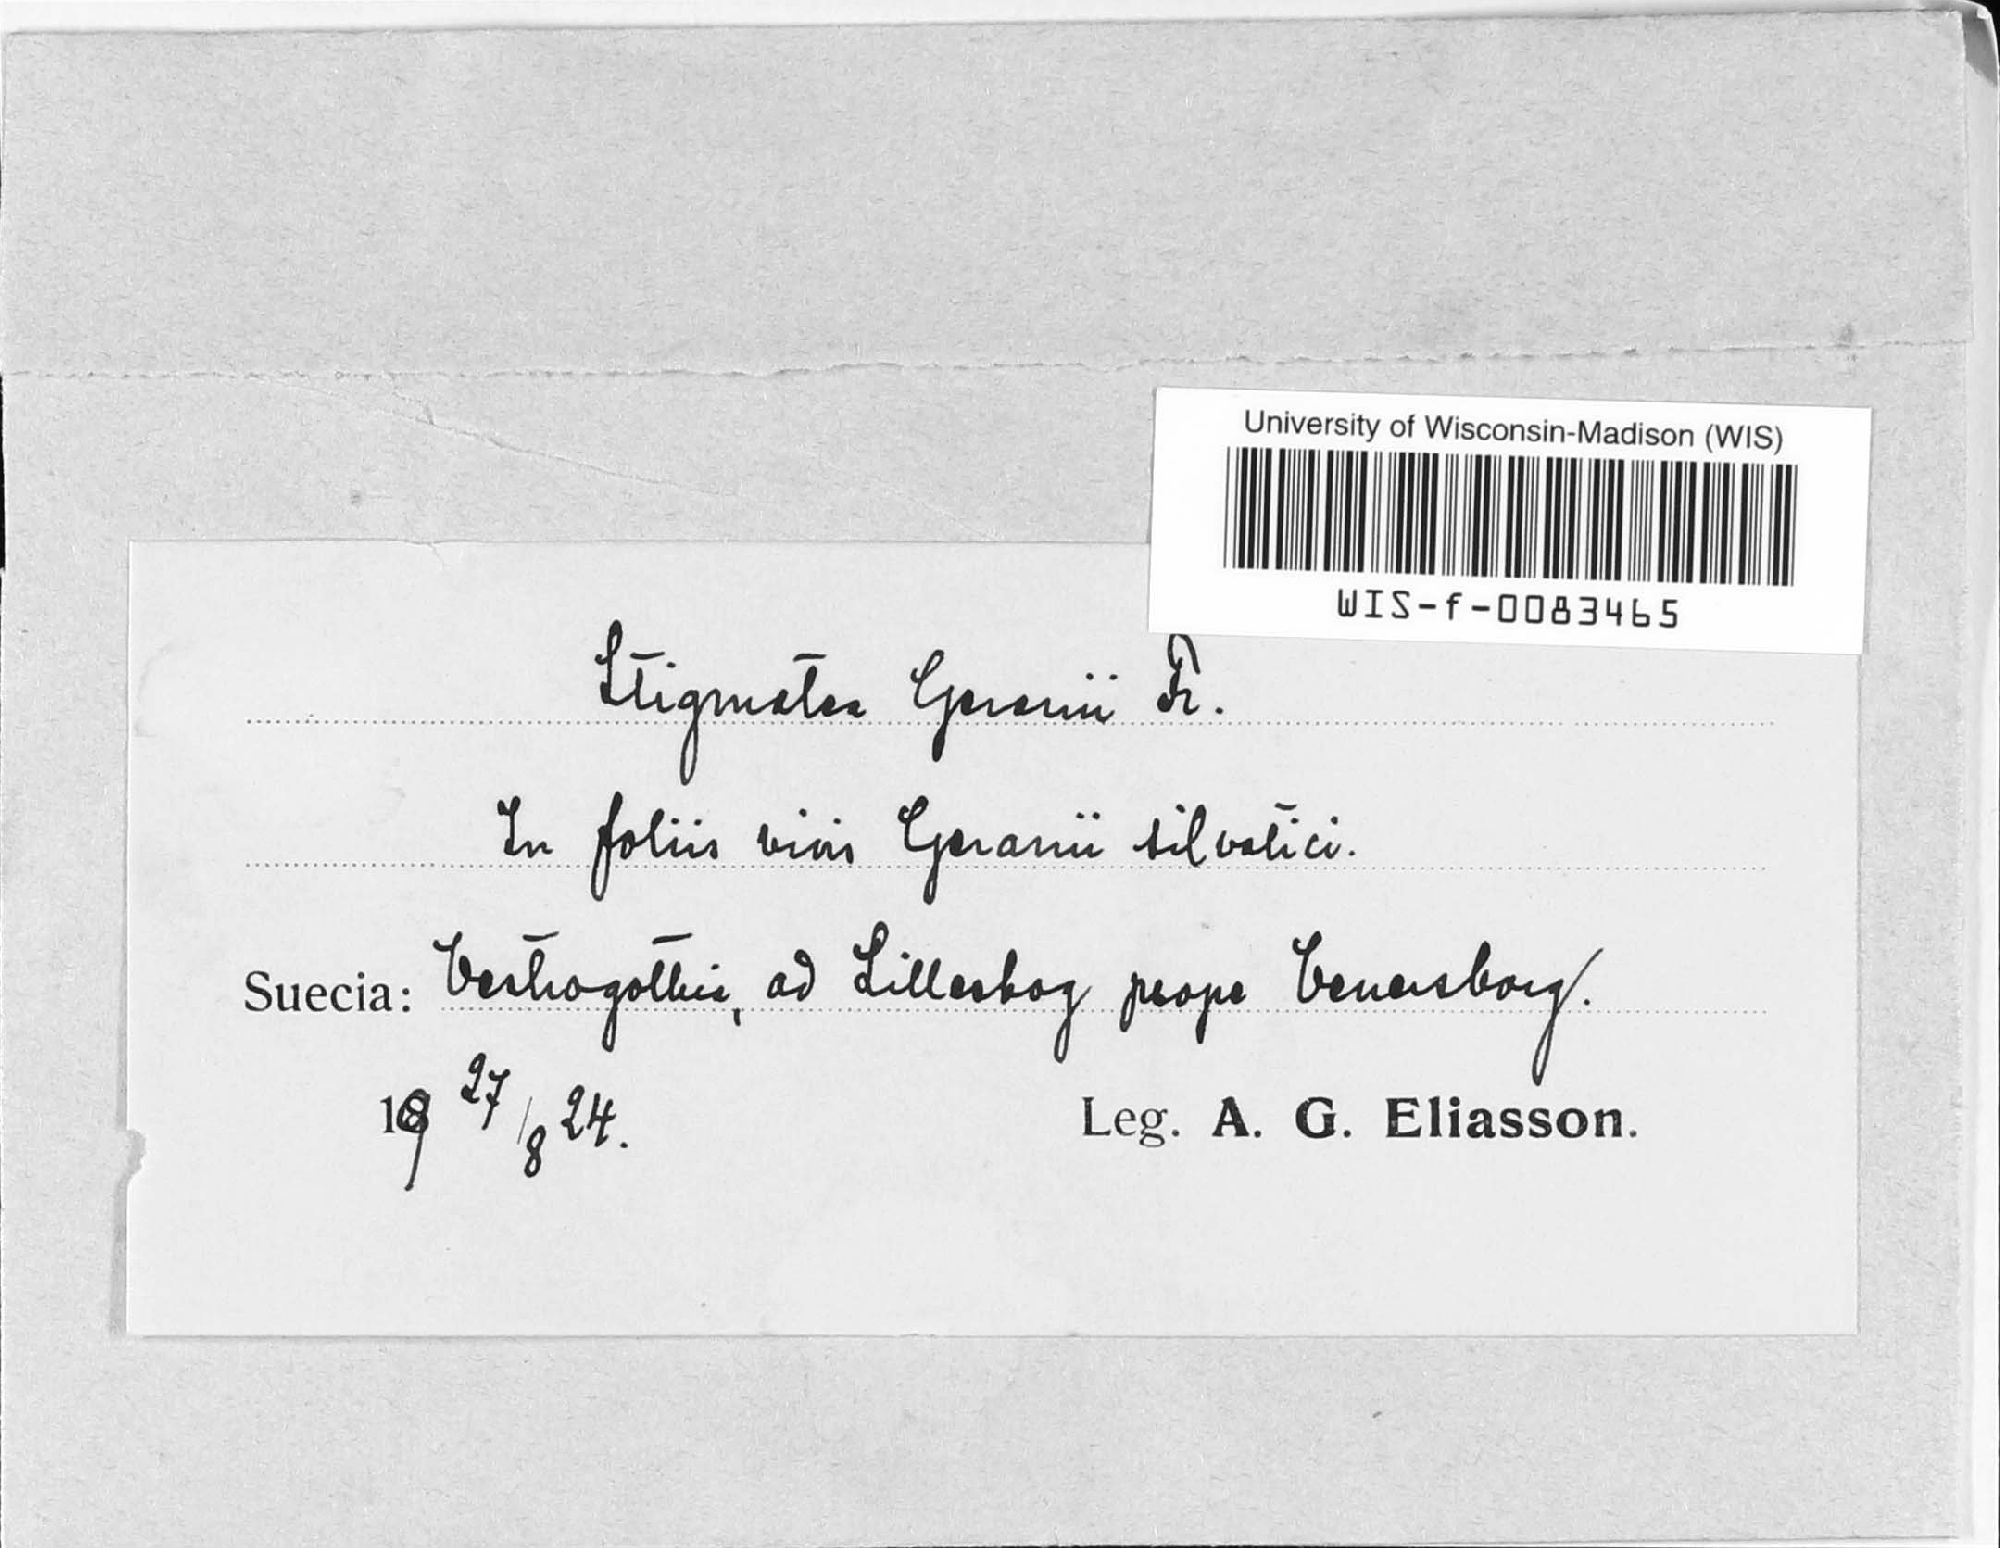 University of Wisconsin-Madison (WIS)
WIS-f-0083465
Stigmatea Geranii Fr.
In foliis vivis Geranii silvatici.
Suecia: Vestrogothia, ad Lilleskog prope Venersborg.
19 27/8 24.
Leg. A. G. Eliasson.